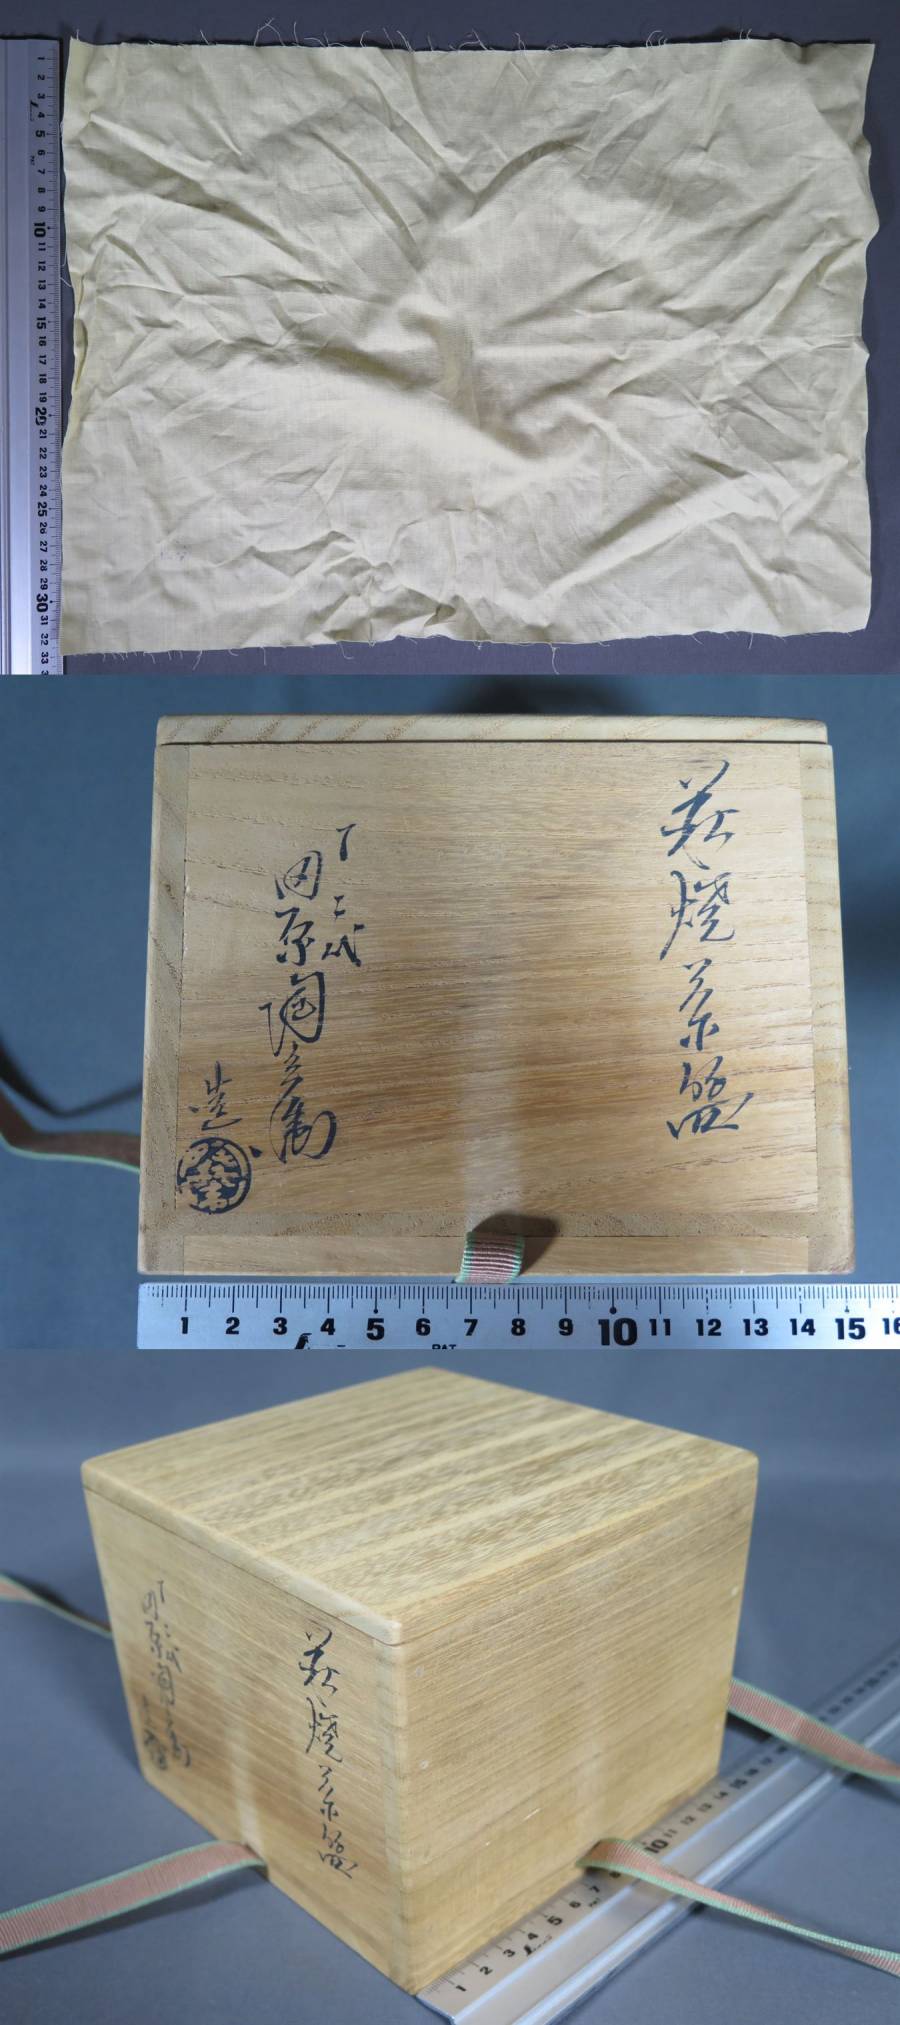 1
2
3
4
5
6
7
8
9
10
11
12
13
14
15
16
17
18
19
20
21
22
23
24
25
26
27
28
29
30
31
32
33
萩焼茶盌
十二代
田原陶兵衛
造
1 2 3 4 5 6 7 8 9 10 11 12 13 14 15 16
PAT
萩焼茶盌
十二代
田原陶兵衛
1 2 3 4 5 6 7 8 9 10 11 12 13 14 15 16